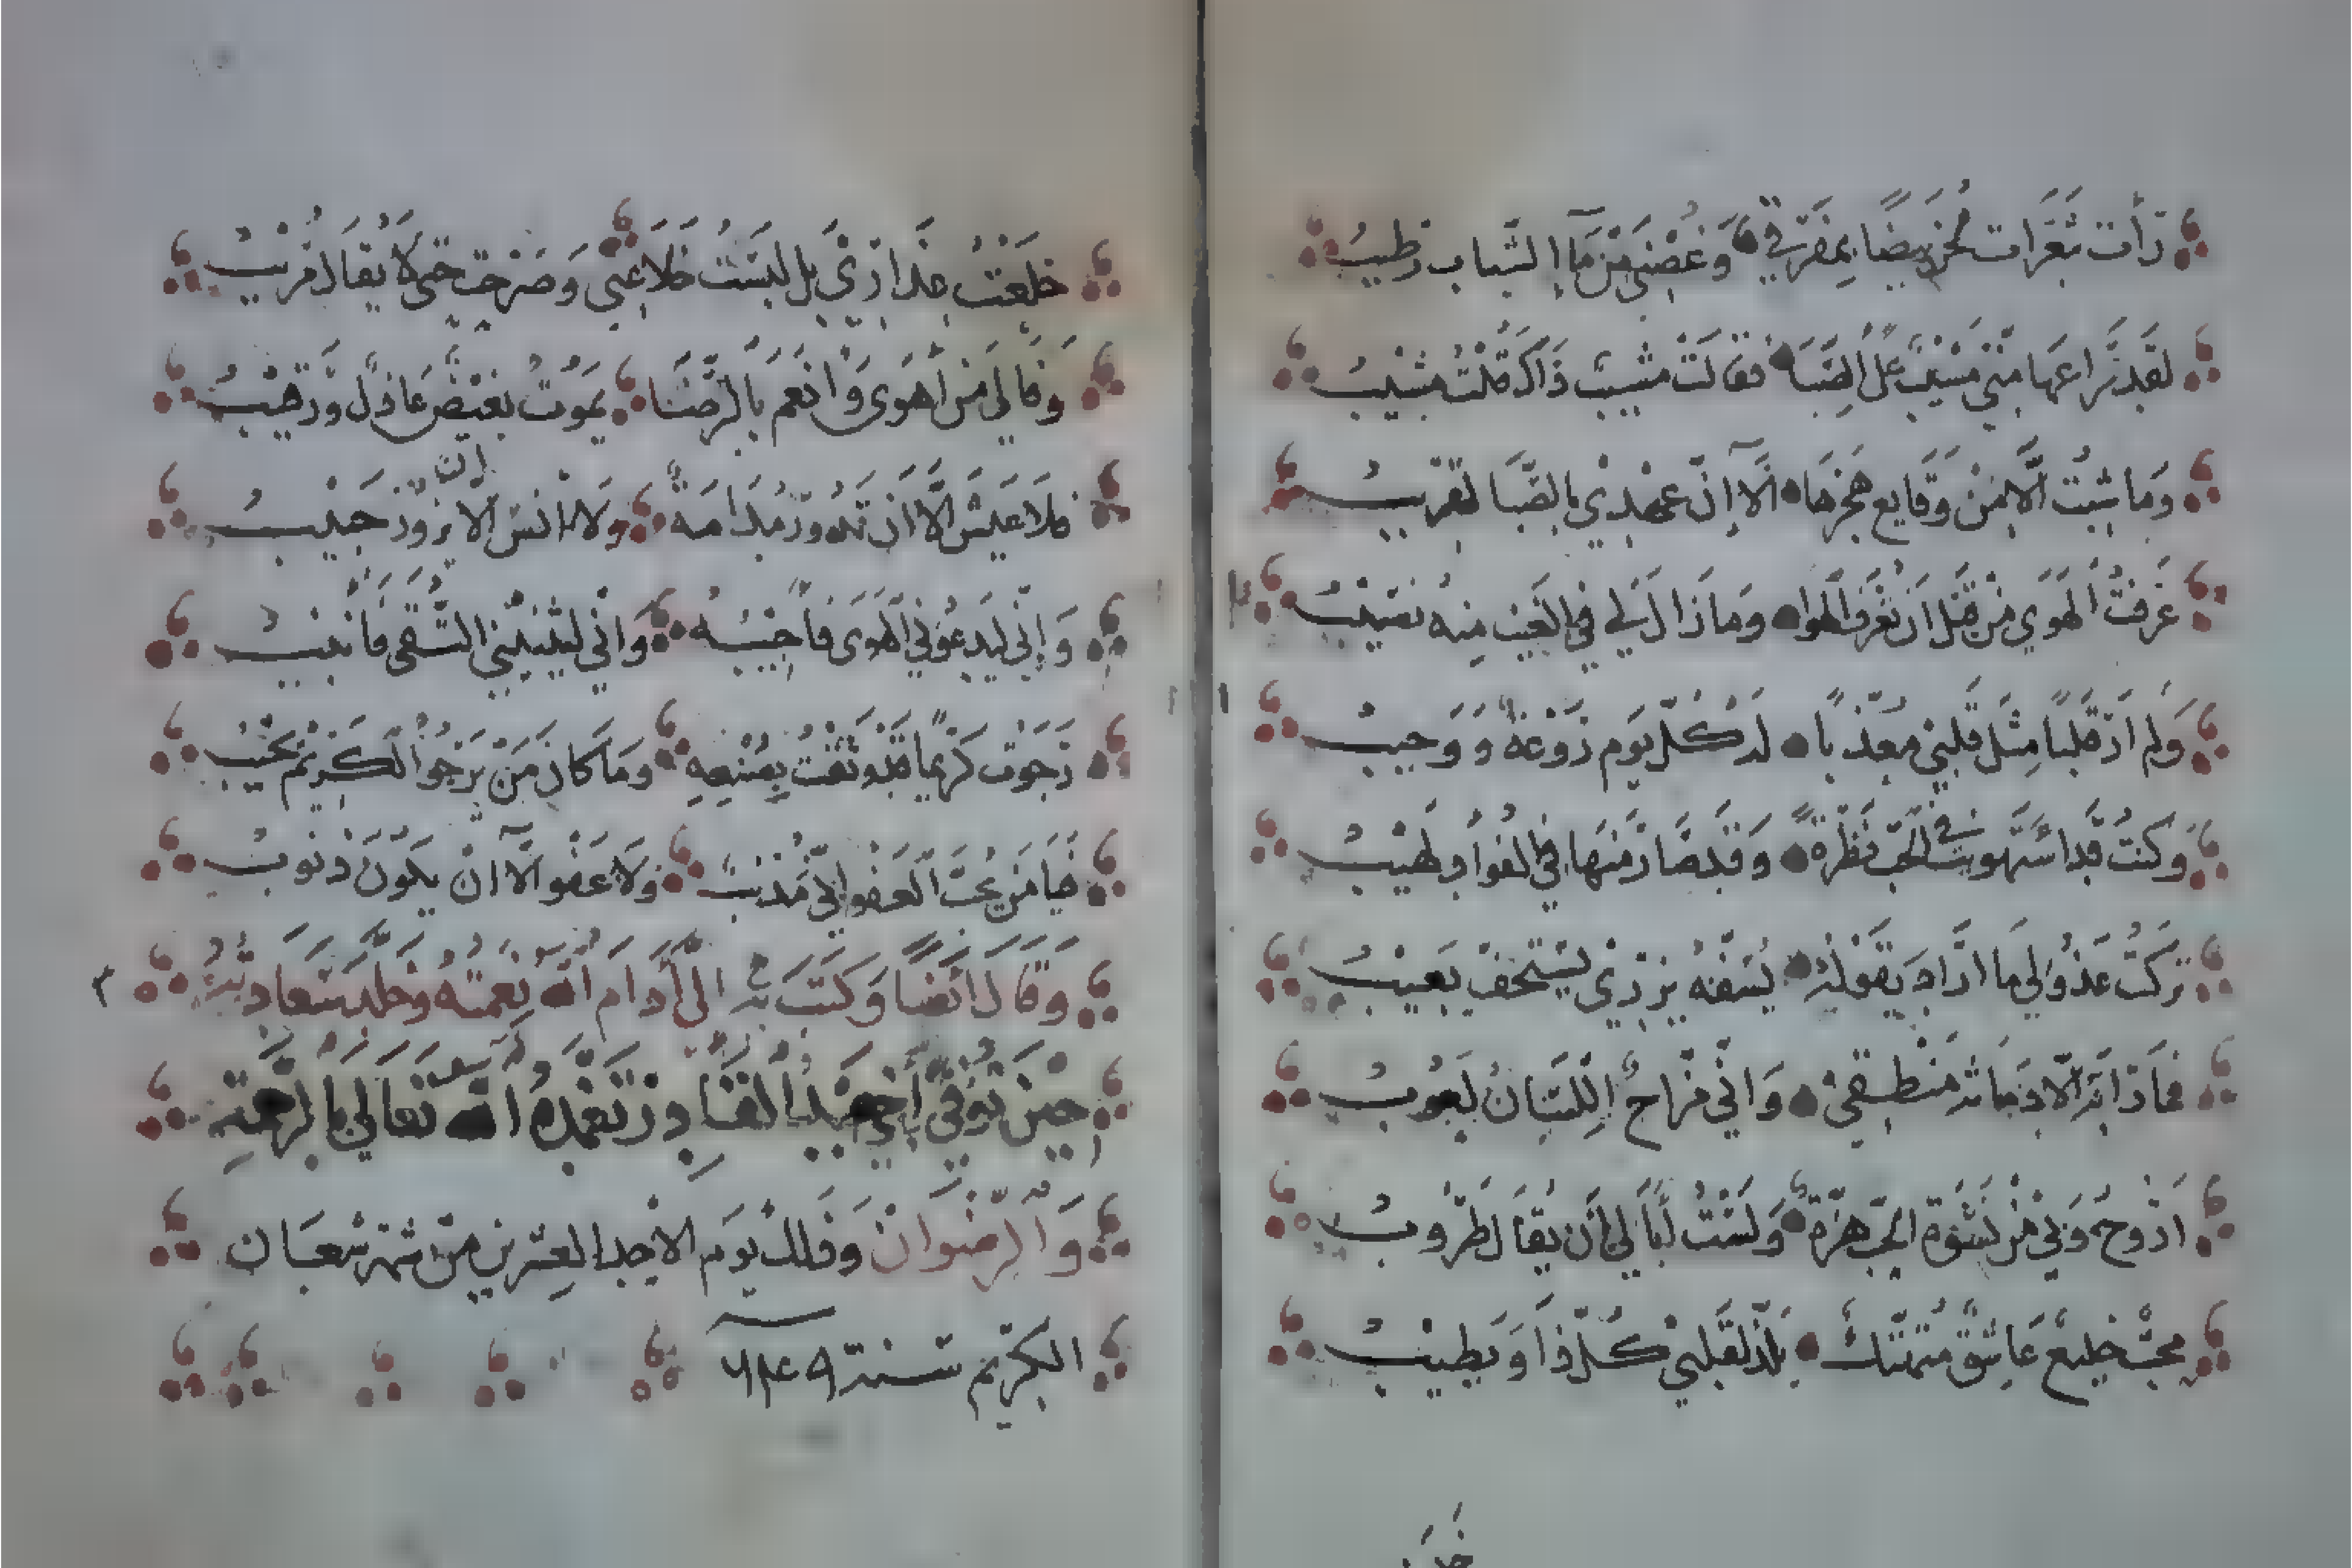 رَأَت شَعَرَات لُحْنَ بِيضًا بِمَفْرَقِي وَغُصْنِي مِنْ مَاءِ الشَّبابِ رَطِيبُ
لَقَد رَاعَهَا مِنِّي مَشِيْبٌ عَلَى الصِّبَا فَقَالَتْ مَشِيبٌ ذَاكَ قُلْتُ مَشِيْبُ
وَمَا شِبْتُ إلَّا مِنْ وَقَايع هَجْرِهَا أَلَا إِنَّ عَهْدِيْ بِالصِّبَا لَقَرِيبُ
عَرَفْتُ الْهَوَى مِنْ قَبْلِ أَنْ تُعْرَفَ الهوا وَمَا زَالَ لِي فِي الغَيْب مِنهُ نَصِيْبُ
وَلم أَرَ قَلبًا مِثْلَ قَلْبِي مُعَذَّبًا لَهُ كُلَّ يَوم رَوْعَةٌ وَوَجِيبُ
وَكنتُ قَدِ اسْتَهويت في الحُبِّ نَظْرَةً وَقَد صَارَ مِنهَا فِي الفُؤادِ لَهِيْبُ
تَرَكْتُ عَذُولِي مَا أَرَادَ بِقَوْلِهِ يُسَفِّهُ يزرْيْ يَسْتَخِفّ يَعِيْبُ
فَمَا رَابَهُ إلَّا دَمَاثَةُ مَنْطِقِي وَانِّي مَزَاحُ اللِّسَانِ لَعُوبُ
أَرُوحُ وَلِي مِنْ نَشْوَةِ الحُبِّ هِزَّةٌ وَلَسْتُ أُبَالِي أَن يُقَالَ طَرُوبُ
مُحِبٌّ خَلِيعٌ عَاشِقٌ مُتَهَتِّكٌ يَلَذُّ لِقَلْبِي كُلُّ ذَا وَيَطِيْبُ
خَلَعْتُ عِذَارِيْ بَل لَبِسْتُ خَلَاعَتِي وَصَرَّحْتُ حَتَّى لَا يُقَالَ مُرِيْبُ
وَفَا لِي مَنْ أَهْوَى وَأَنْعَمَ بِالرِّضَا يَمُوتُ بِغَيْضٍ عَاذِلٌ وَرَقِيْبُ
فَلَا عَيْشَ إلَّا أَنْ تَدُورَ مُدَامَةٌ وَلَا أُنْسَ إلا ان يَزُورَ حَبِيْبُ
وَإِنِّي لَيَدْعُونِي الْهَوَى فَأُجِيْبُهُ وَانِّي لَيَثْنِيْنِي التُّقَى فَأُنِيْبُ
رَجَوْت كَرِيمًا قَدْ وَثِقْتُ بِصُنْعِهِ وَمَا كَانَ مَنْ يَرْجُو الْكَرِيْم يَخِيْبُ
فَيَا مَنْ يُحِبُّ الْعَفْو إنِّي مُذْنِبٌ وَلَا عَفْو إلَّا انْ يَكُوْنَ ذُنُوبُ
وَقَالَ أَيْضًا وَكَتَبَ بِهِ إلَى أَدَامَ اللهُ نِعْمَتَهُ وَخَلَّدَ سَعَادَتَهُ
حِيْنَ تُوُفِّيَ أَخِي عَبْدُ القَادِرِ تَغَمَّدَهُ اللهُ تَعَالى بِالرَّحْمَةِ
وَالرِّضْوَانْ وَذَلكَ يَومَ الاحدِ العِشرين مِن شَهْرِ شَعْبَان
الكَرِيْم سَنة